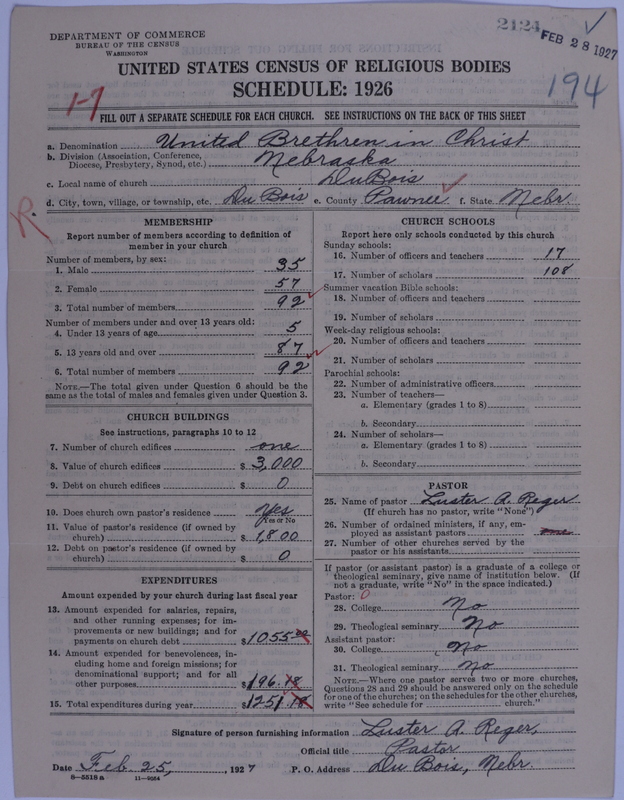 2124
FEB 28 1927
194
DEPARTMENT OF COMMERCE
BUREAU OF THE CENSUS
WASHINGTON
UNITED STATES CENSUS OF RELIGIOUS BODIES
SCHEDULE: 1926
1-7
FILL OUT A SEPARATE SCHEDULE FOR EACH CHURCH. SEE INSTRUCTIONS ON THE BACK OF THIS SHEET
a. Denomination United Brethren in Christ
b. Division (Association, Conference,
Diocese, Presbytery, Synod, etc.) Nebraska
c. Local name of church DuBois
d. City, town, village, or township, etc. Du Bois e. County Pawnee f. State Nebr.
R.
MEMBERSHIP
Report number of members according to definition of
member in your church
Number of members, by sex:
1. Male 35
2. Female 57
3. Total number of members 92
Number of members under and over 13 years old:
4. Under 13 years of age 5
5. 13 years old and over 87
6. Total number of members 92
NOTE.—The total given under Question 6 should be the
same as the total of males and females given under Question 3.
CHURCH BUILDINGS
See instructions, paragraphs 10 to 12
7. Number of church edifices one
8. Value of church edifices $ 3,000
9. Debt on church edifices $ 0
10. Does church own pastor's residence Yes
Yes or No
11. Value of pastor's residence (if owned by
church) $ 1,800
12. Debt on pastor's residence (if owned by
church) $ 0
EXPENDITURES
Amount expended by your church during last fiscal year
13. Amount expended for salaries, repairs,
and other running expenses; for im-
provements or new buildings; and for
payments on church debt $ 1055.00
14. Amount expended for benevolences, in-
cluding home and foreign missions; for
denominational support; and for all
other purposes $ 196.18
15. Total expenditures during year $ 1251.18
CHURCH SCHOOLS
Report here only schools conducted by this church
Sunday schools:
16. Number of officers and teachers 17
17. Number of scholars 108
Summer vacation Bible schools:
18. Number of officers and teachers
19. Number of scholars
Week-day religious schools:
20. Number of officers and teachers
21. Number of scholars
Parochial schools:
22. Number of administrative officers
23. Number of teachers—
a. Elementary (grades 1 to 8)
b. Secondary
24. Number of scholars—
a. Elementary (grades 1 to 8)
b. Secondary
PASTOR
25. Name of pastor Luster A. Reger
(If church has no pastor, write "None")
26. Number of ordained ministers, if any, em-
ployed as assistant pastors one
27. Number of other churches served by the
pastor or his assistants
If pastor (or assistant pastor) is a graduate of a college or
theological seminary, give name of institution below. (If
not a graduate, write "No" in the space indicated.)
Pastor: 0
28. College No
29. Theological seminary No
Assistant pastor:
30. College No
31. Theological seminary No
NOTE.—Where one pastor serves two or more churches,
Questions 28 and 29 should be answered only on the schedule
for one of the churches; on the schedules for the other churches,
write "See schedule for church."
Signature of person furnishing information Luster A. Reger,
Official title Pastor
Date Feb. 25, 1927 P. O. Address Du Bois, Nebr.
8—5518 a 11—9054